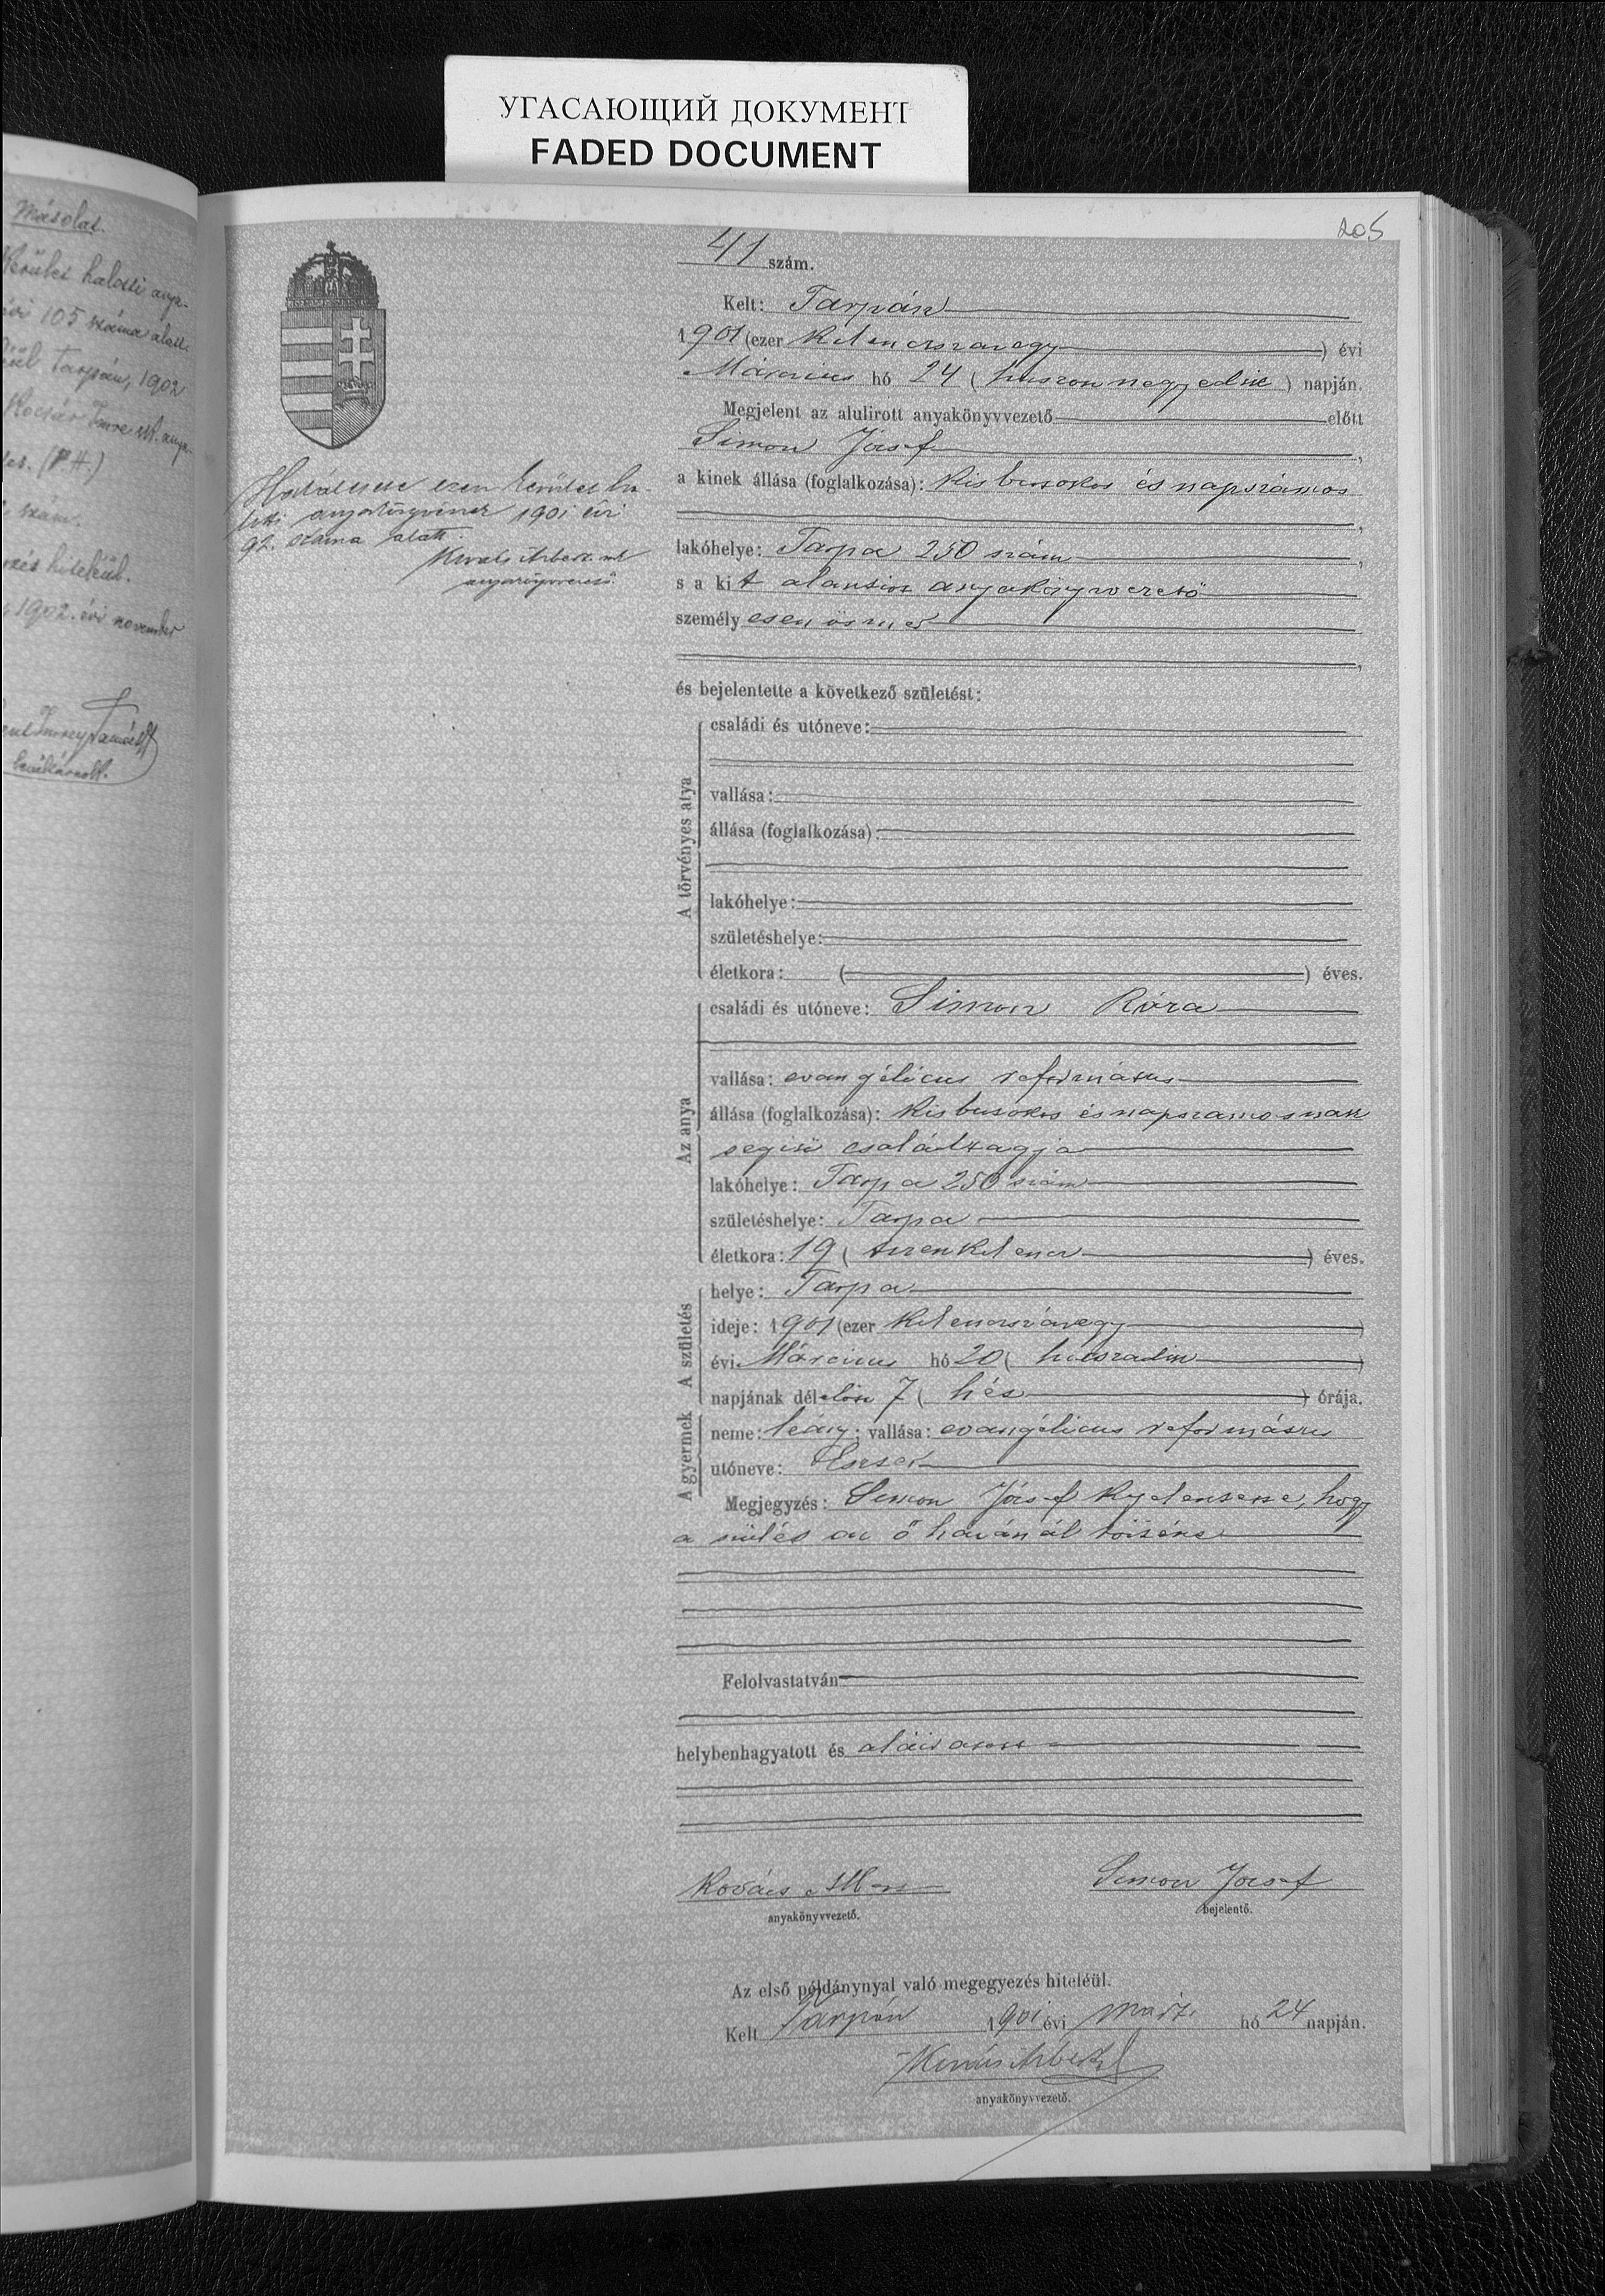 УГАСАЮЩИЙ ДОКУМЕНТ
FADED DOCUMENT
205
Másolat.
105 száma alatt.
Tarpán, 1902
Kocsár Imre
(P.H.)
szám.
1902. évi november
41 szám.
Kelt: Tarpán
1901 (ezer kilenczszázegy) évi
Márczius hó 24 (huszonnegyedik) napján.
Megjelent az alulirott anyakönyvvezető előtt
Simon József,
a kinek állása (foglalkozása): kisbirtokos és napszámos,
lakóhelye: Tarpa 250 szám,
s a kit alantirt anyakönyvvezető
személyesen ösmer,
és bejelentette a következő születést:
A törvényes atya
családi és utóneve:
vallása:
állása (foglalkozása):
lakóhelye:
születéshelye:
életkora: ( ) éves.
Az anya
családi és utóneve: Simon Róza
vallása: evangélicus református
állása (foglalkozása): kisbirtokos és napszámosnak
segitő családtagja
lakóhelye: Tarpa 250 szám
születéshelye: Tarpa
életkora: 19 (tizenkilencz) éves.
A születés
helye: Tarpa
ideje: 1901 (ezer kilenczszázegy)
évi Márczius hó 20 (huszadik)
napjának délelőtt 7 (hét) órája.
A gyermek
neme: leány; vallása: evangélicus református
utóneve: Eszter
Megjegyzés: Simon József kijelentette, hogy
a szülés az ő házánál történt
Felolvastatván
helybenhagyatott és aláiratott
Kovács Albert
anyakönyvvezető.
Simon József
bejelentő.
Az első példánynyal való megegyezés hiteléül.
Kelt Tarpán 1901 évi márcz. hó 24 napján.
Kovács Albert
anyakönyvvezető.
Halálesete ezen kerület ha-
lotti anyakönyvének 1901 évi
92. száma alatt.
Kovács Albert
anyakönyvvezető.